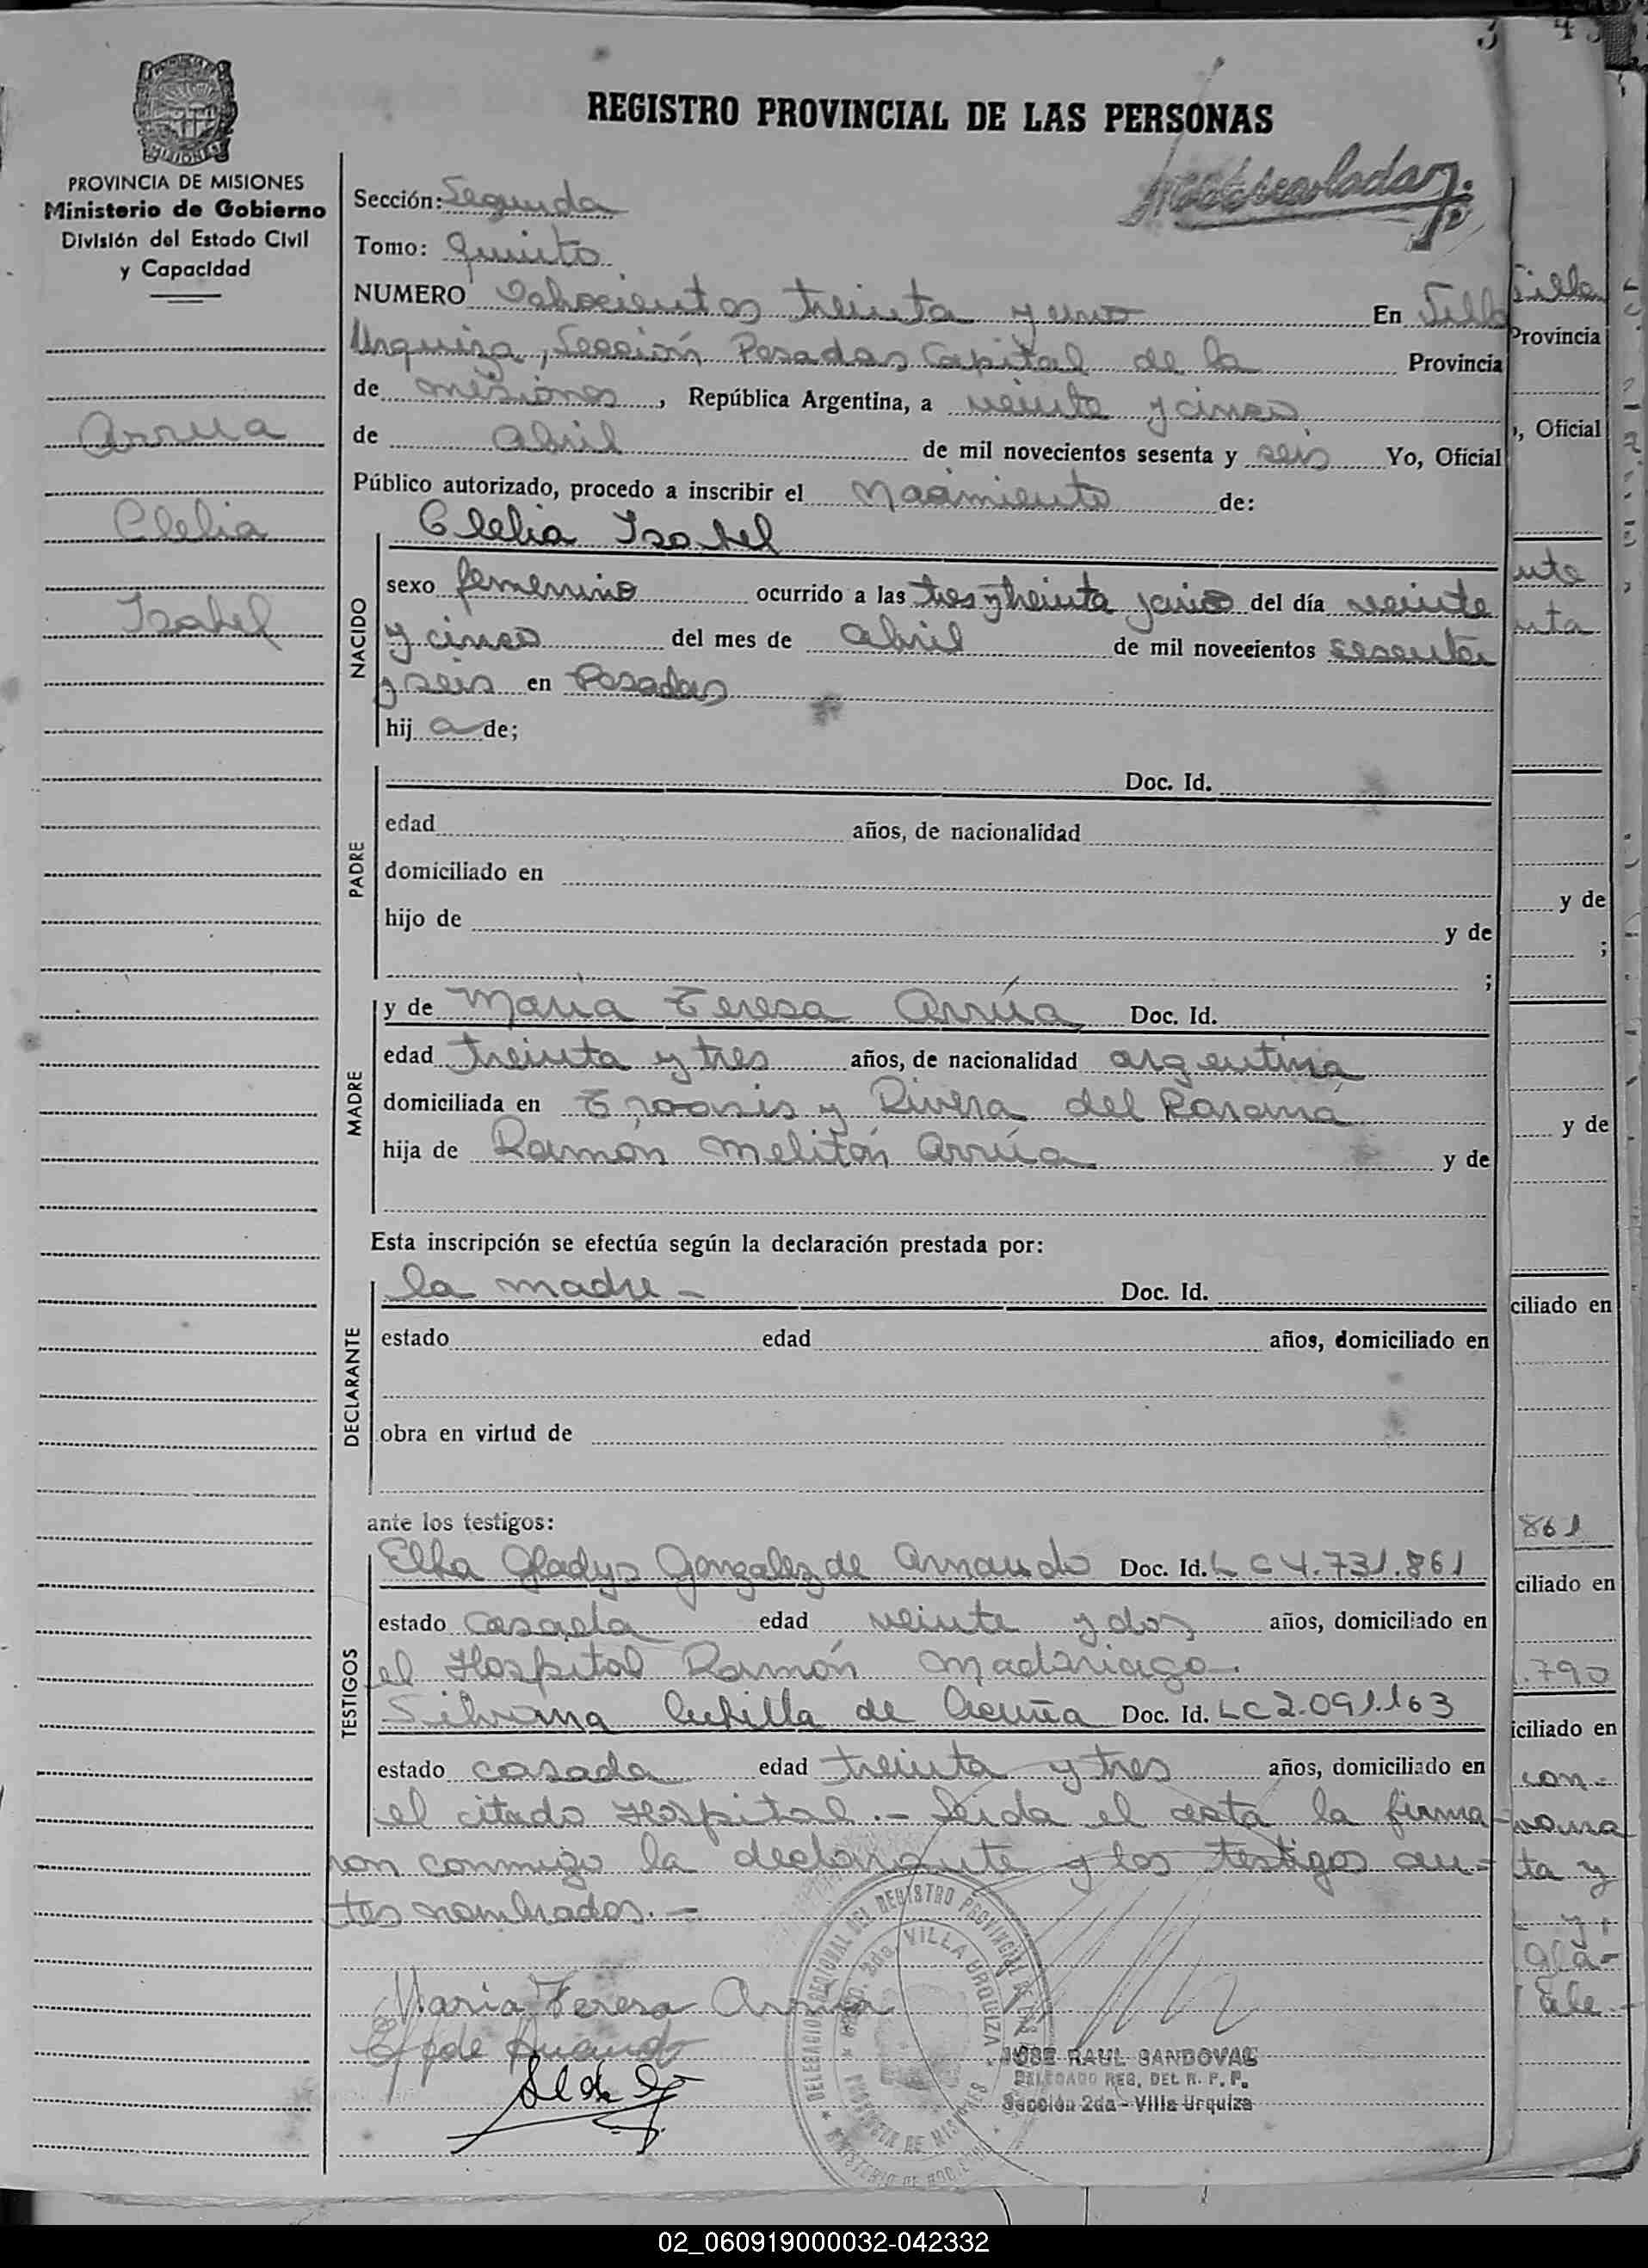 3
REGISTRO PROVINCIAL DE LAS PERSONAS
MISIONES
PROVINCIA DE MISIONES
Ministerio de Gobierno
División del Estado Civil
y Capacidad
Arrua
Clelia
Isabel
Sección: Segunda
Tomo: Quinto
NUMERO Ochocientos treinta y uno En Villa
Urquiza, Sección Posadas Capital de la Provincia
de Misiones, República Argentina, a veinte y cinco
de abril de mil novecientos sesenta y seis Yo, Oficial
Público autorizado, procedo a inscribir el Nacimiento de:
NACIDO
Clelia Isabel
sexo femenino ocurrido a las tres y treinta y cinco del día veinte
y cinco del mes de Abril de mil novecientos sesenta
y seis en Posadas
hij a de;
PADRE
Doc. Id.
edad años, de nacionalidad
domiciliado en
hijo de y de
;
MADRE
y de Maria Teresa Arrúa Doc. Id.
edad treinta y tres años, de nacionalidad argentina
domiciliada en y Rivera del Paraná
hija de Ramón Melitón Arrúa y de
Esta inscripción se efectúa según la declaración prestada por:
DECLARANTE
la madre - Doc. Id.
estado edad años, domiciliado en
obra en virtud de
ante los testigos:
TESTIGOS
Elba Gladys Gonzalez de Arnaudo Doc. Id. LC 4.731.861
estado casada edad veinte y dos años, domiciliado en
el Hospital Ramón Madariaga.
Silvina de Acuña Doc. Id. LC 2.091.163
estado casada edad treinta y tres años, domiciliado en
el citado Hospital.- Leida el acta la firma-
ron conmigo la declarante y los testigos an-
tes nombrados.-
Maria Teresa Arrua
DELEGACION REGIONAL DEL REGISTRO PROVINCIAL DE LAS
2da. VILLA URQUIZA
PROVINCIA DE MISIONES
JOSE RAUL SANDOVAL
DELEGADO REG. DEL R. P. P.
Sección 2da - Villa Urquiza
Villa
Provincia
, Oficial
y de
;
y de
ciliado en
861
ciliado en
.790
iciliado en
con-
ta y
02_060919000032-042332